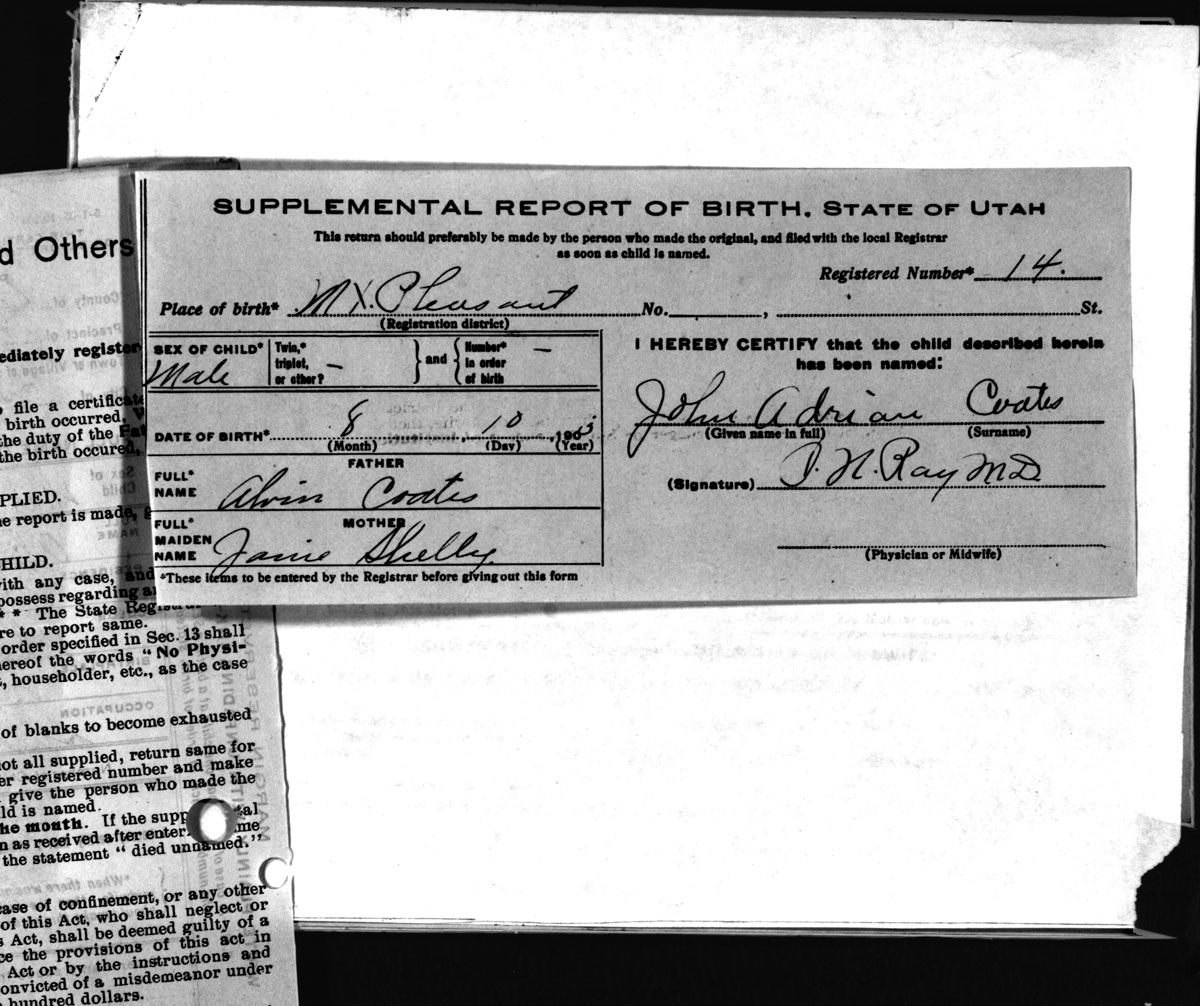 SUPPLEMENTAL REPORT OF BIRTH. STATE OF UTAH
This return should preferably be made by the person who made the original, and filed with the local Registrar
as soon as child is named.
Registered Number* 14.
Place of birth* Mt. Pleasant No. , St.
(Registration district)
SEX OF CHILD* Male
Twin,* triplet, or other? — } and { Number* in order of birth —
DATE OF BIRTH* 8 , 10 , 190
(Month) (Day) (Year)
FATHER
FULL* NAME Alvin Coates
MOTHER
FULL* MAIDEN NAME Janie Shelley
*These items to be entered by the Registrar before giving out this form
I HEREBY CERTIFY that the child described herein
has been named:
John Adrian Coates
(Given name in full) (Surname)
(Signature) P. N. Ray MD
(Physician or Midwife)
d Others
ediately register
file a certificate
birth occurred,
the duty of the
the birth occured,
PLIED.
e report is made,
HILD.
ith any case, and
possess regarding
* * The State
re to report same.
order specified in Sec. 13 shall
hereof the words "No Physi-
, householder, etc., as the case
of blanks to become exhausted
not all supplied, return same for
er registered number and make
give the person who made the
ld is named.
he month. If the
n as received after
the statement "died unnamed."
case of confinement, or any other
of this Act, who shall neglect or
s Act, shall be deemed guilty of a
ce the provisions of this act in
Act or by the instructions and
onvicted of a misdemeanor under
hundred dollars.